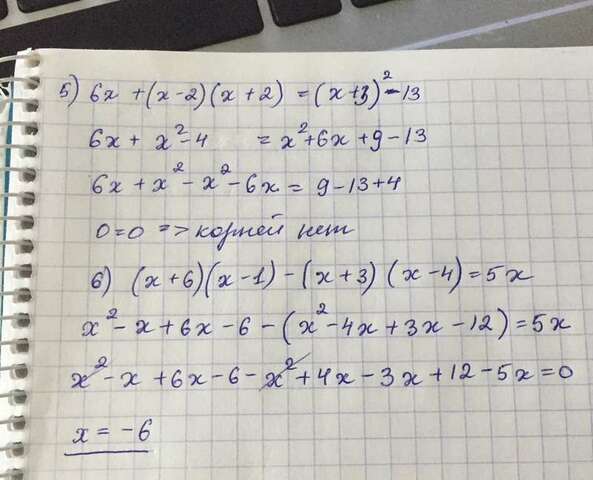 5) 6x + (x-2)(x+2) = (x+3)² - 13
6x + x² - 4 = x² + 6x + 9 - 13
6x + x² - x² - 6x = 9 - 13 + 4
0 = 0 => корней нет
6) (x+6)(x-1) - (x+3)(x-4) = 5x
x² - x + 6x - 6 - (x² - 4x + 3x - 12) = 5x
x² - x + 6x - 6 - x² + 4x - 3x + 12 - 5x = 0
x = -6